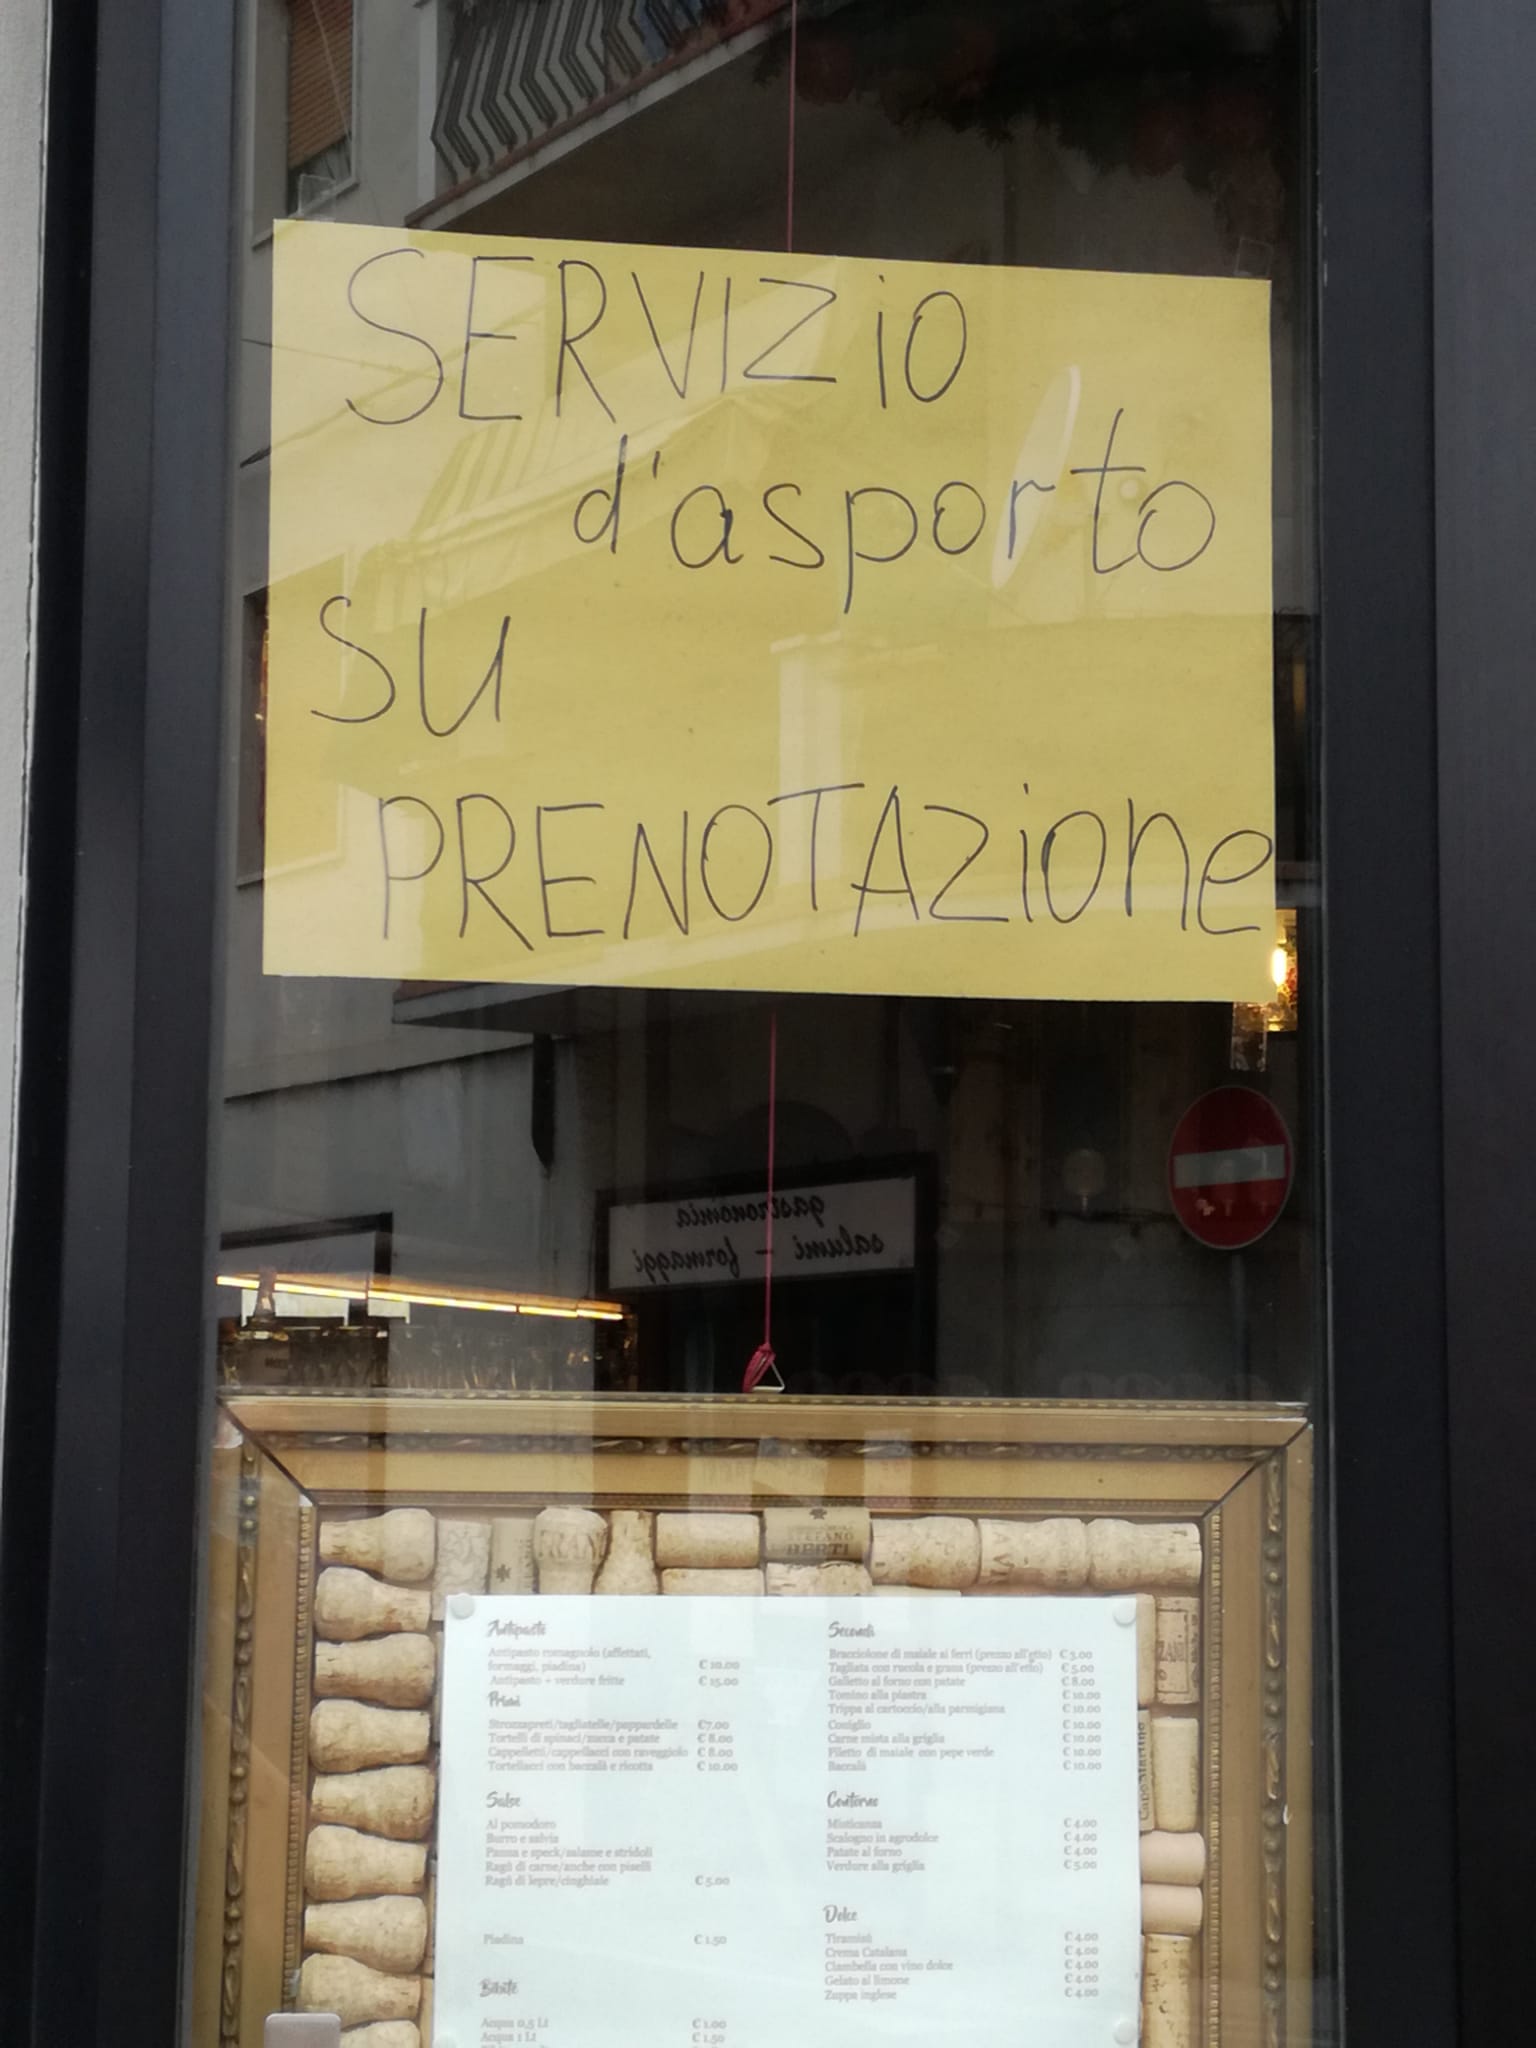 SERVIZiO
d'asporto
su
PRENOTAZione
gastronomia
salumi - formaggi
STEFANO
BERTI
Antipasti
Antipasto romagnolo (affettati,
formaggi, piadina) € 10.00
Antipasto + verdure fritte € 15.00
Primi
Strozzapreti/tagliatelle/pappardelle €7.00
Tortelli di spinaci/zucca e patate € 8.00
Cappelletti/cappellacci con raveggiolo € 8.00
Tortellacci con baccalà e ricotta € 10.00
Salse
Al pomodoro
Burro e salvia
Panna e speck/salame e stridoli
Ragù di carne/anche con piselli
Ragù di lepre/cinghiale € 5.00
Piadina € 1.50
Bibite
Acqua 0,5 Lt € 1.00
Acqua 1 Lt € 1.50
Secondi
Bracciolone di maiale ai ferri (prezzo all'etto) € 3.00
Tagliata con rucola e grana (prezzo all'etto) € 5.00
Galletto al forno con patate € 8.00
Tomino alla piastra € 10.00
Trippa al cartoccio/alla parmigiana € 10.00
Coniglio € 10.00
Carne mista alla griglia € 10.00
Filetto di maiale con pepe verde € 10.00
Baccalà € 10.00
Contorno
Misticanza € 4.00
Scalogno in agrodolce € 4.00
Patate al forno € 4.00
Verdure alla griglia € 5.00
Dolce
Tiramisù € 4.00
Crema Catalana € 4.00
Ciambella con vino dolce € 4.00
Gelato al limone € 4.00
Zuppa inglese € 4.00